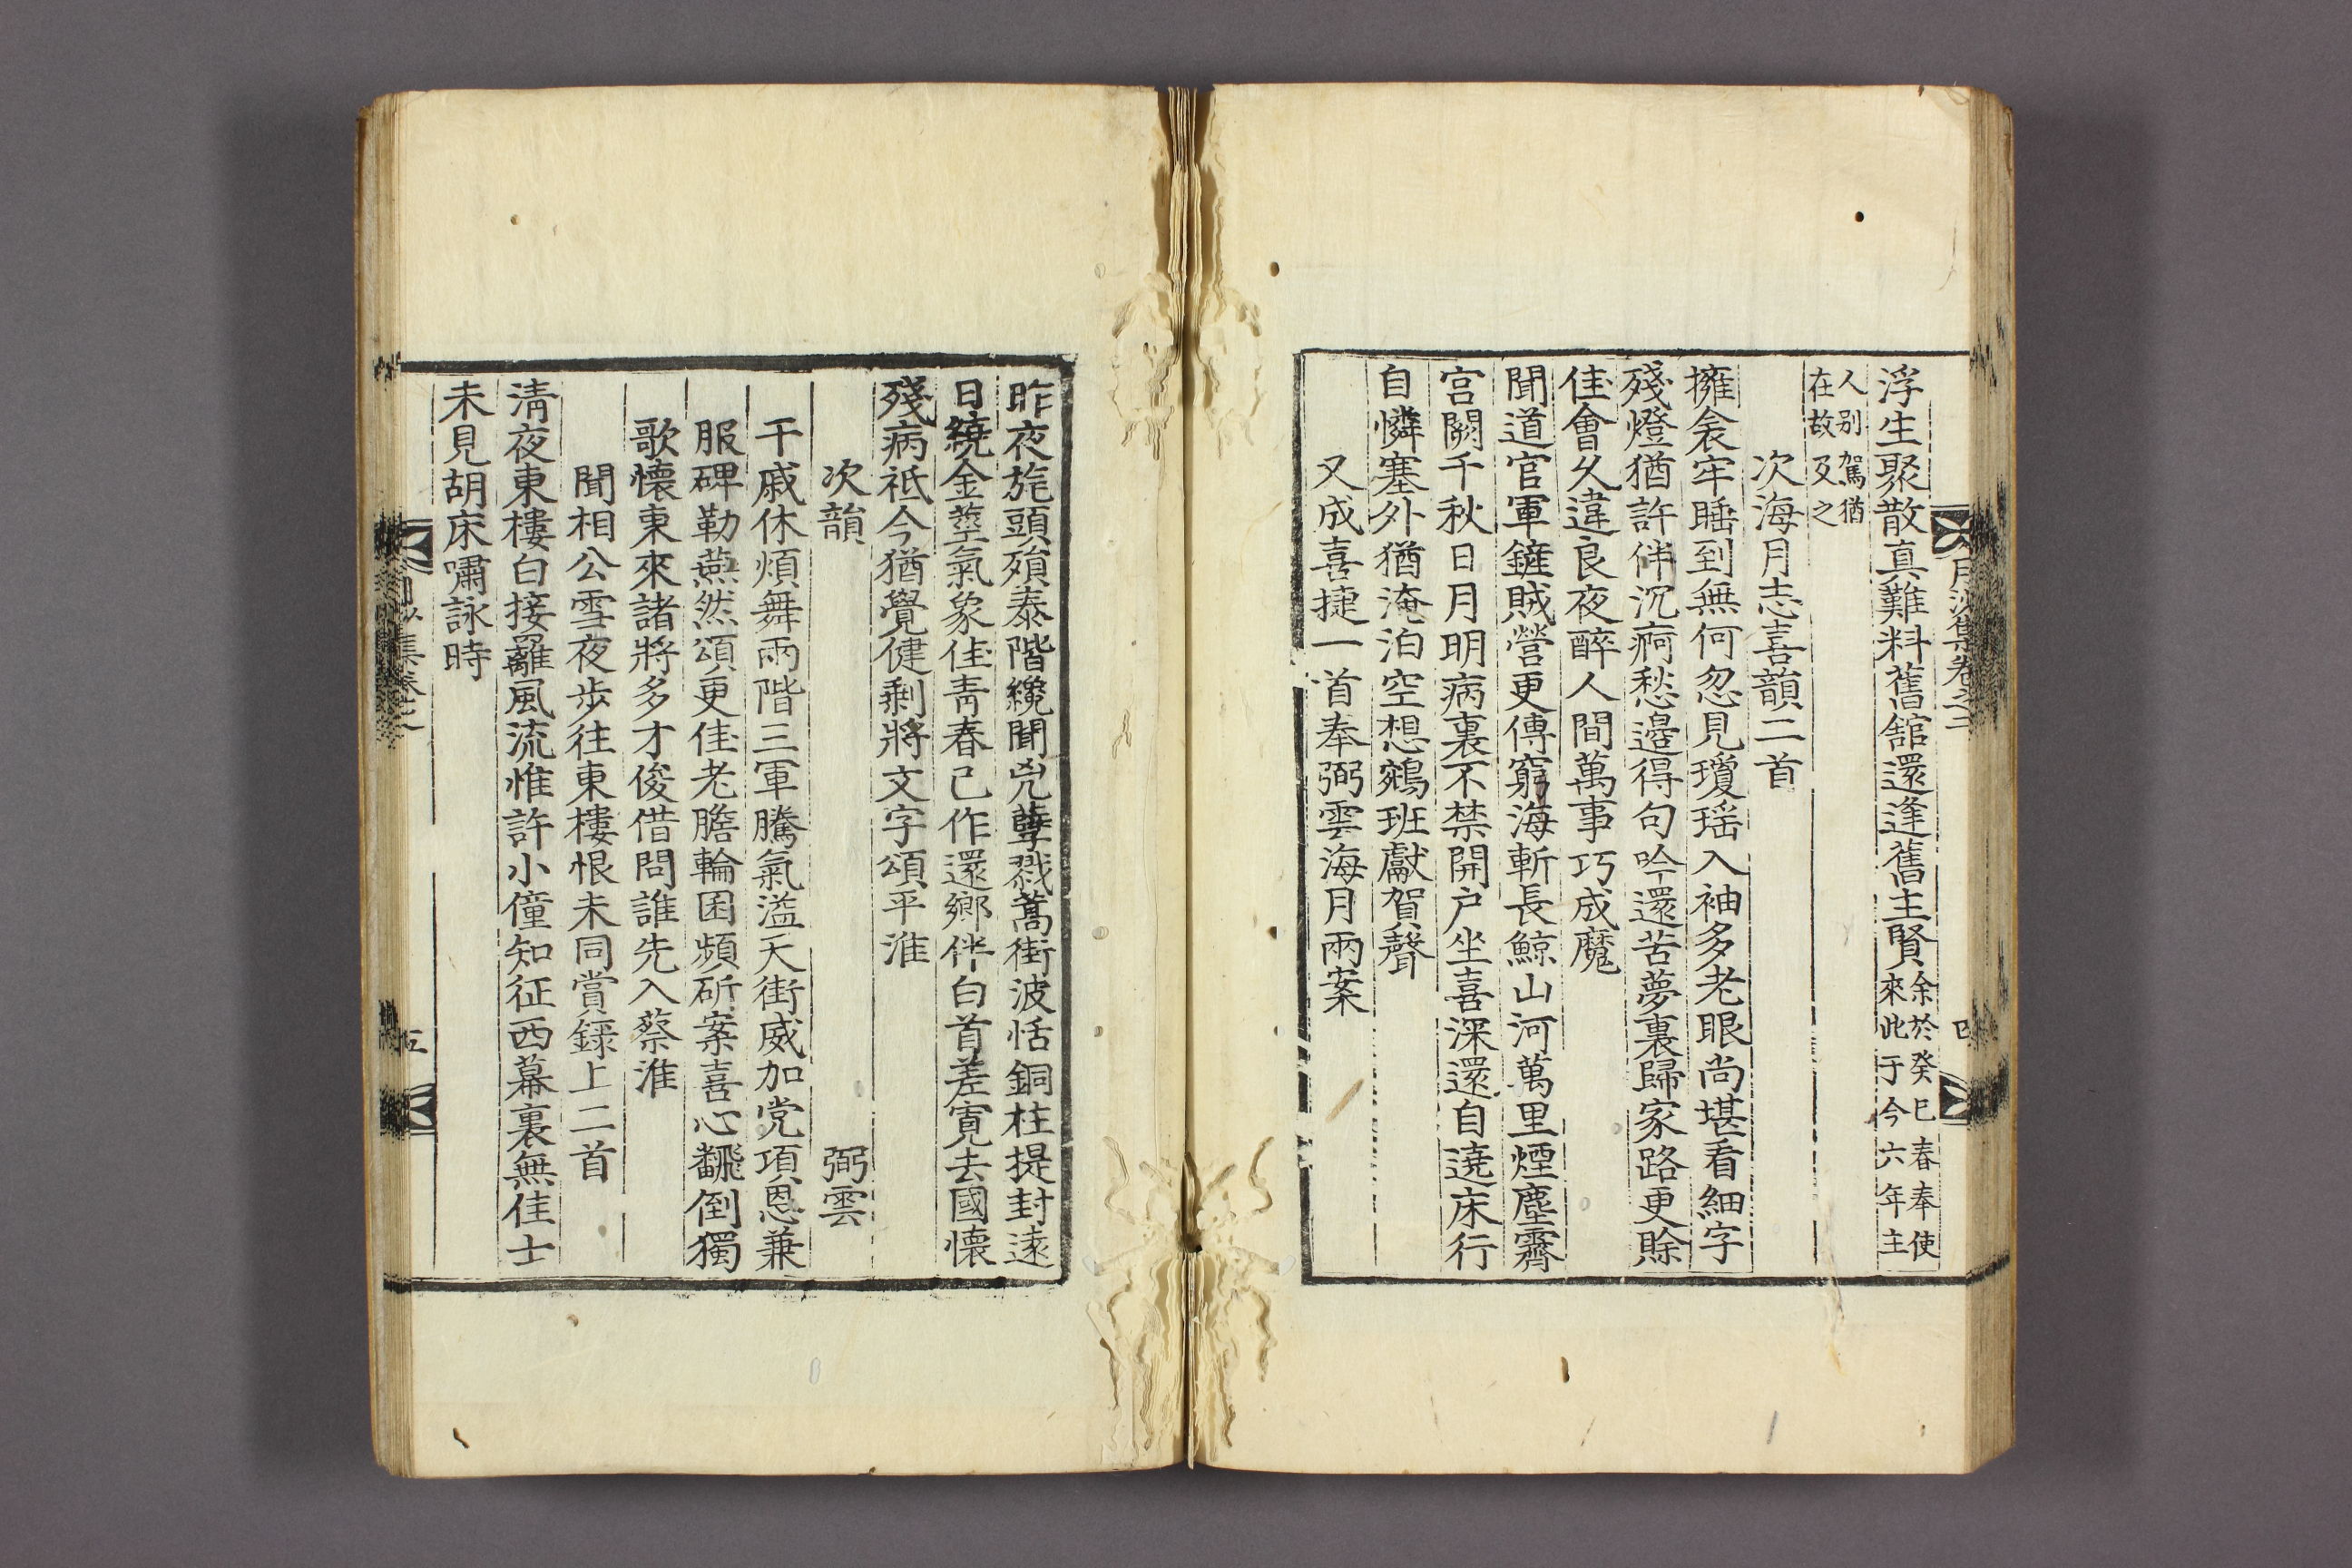 月沙集卷之二
四
浮生聚散真難料舊館還逢舊主賢余於癸巳春奉使
來此于今六年主
人别駕猶
在故及之
次海月志喜韻二首
擁衾牢睡到無何忽見瓊瑶入袖多老眼尚堪看細字
殘燈猶許伴沉痾愁邊得句吟還苦夢裏歸家路更賖
佳會久違良夜醉人間萬事巧成魔
聞道官軍鏟賊營更傳窮海斬長鯨山河萬里煙塵霽
宫闕千秋日月明病裏不禁開户坐喜深還自遶床行
自憐塞外猶淹泊空想鵷班獻賀聲
又成喜捷一首奉弼雲海月兩案
昨夜旄頭殞泰階纔聞兇孽戮藁街波恬銅柱提封遠
日繞金莖氣象佳靑春已作還鄉伴白首差寛去國懷
殘病祗今猶覺健剩將文字頌平淮
次韻 弼雲
干戚休煩舞兩階三軍騰氣溢天街威加党項恩兼
服碑勒燕然頌更佳老膽輪囷頻斫案喜心飜倒獨
歌懷東來諸將多才俊借問誰先入蔡淮
聞相公雪夜步往東樓恨未同賞録上二首
淸夜東樓白接䍦風流惟許小僮知征西幕裏無佳士
未見胡床嘯詠時
集卷之二
五